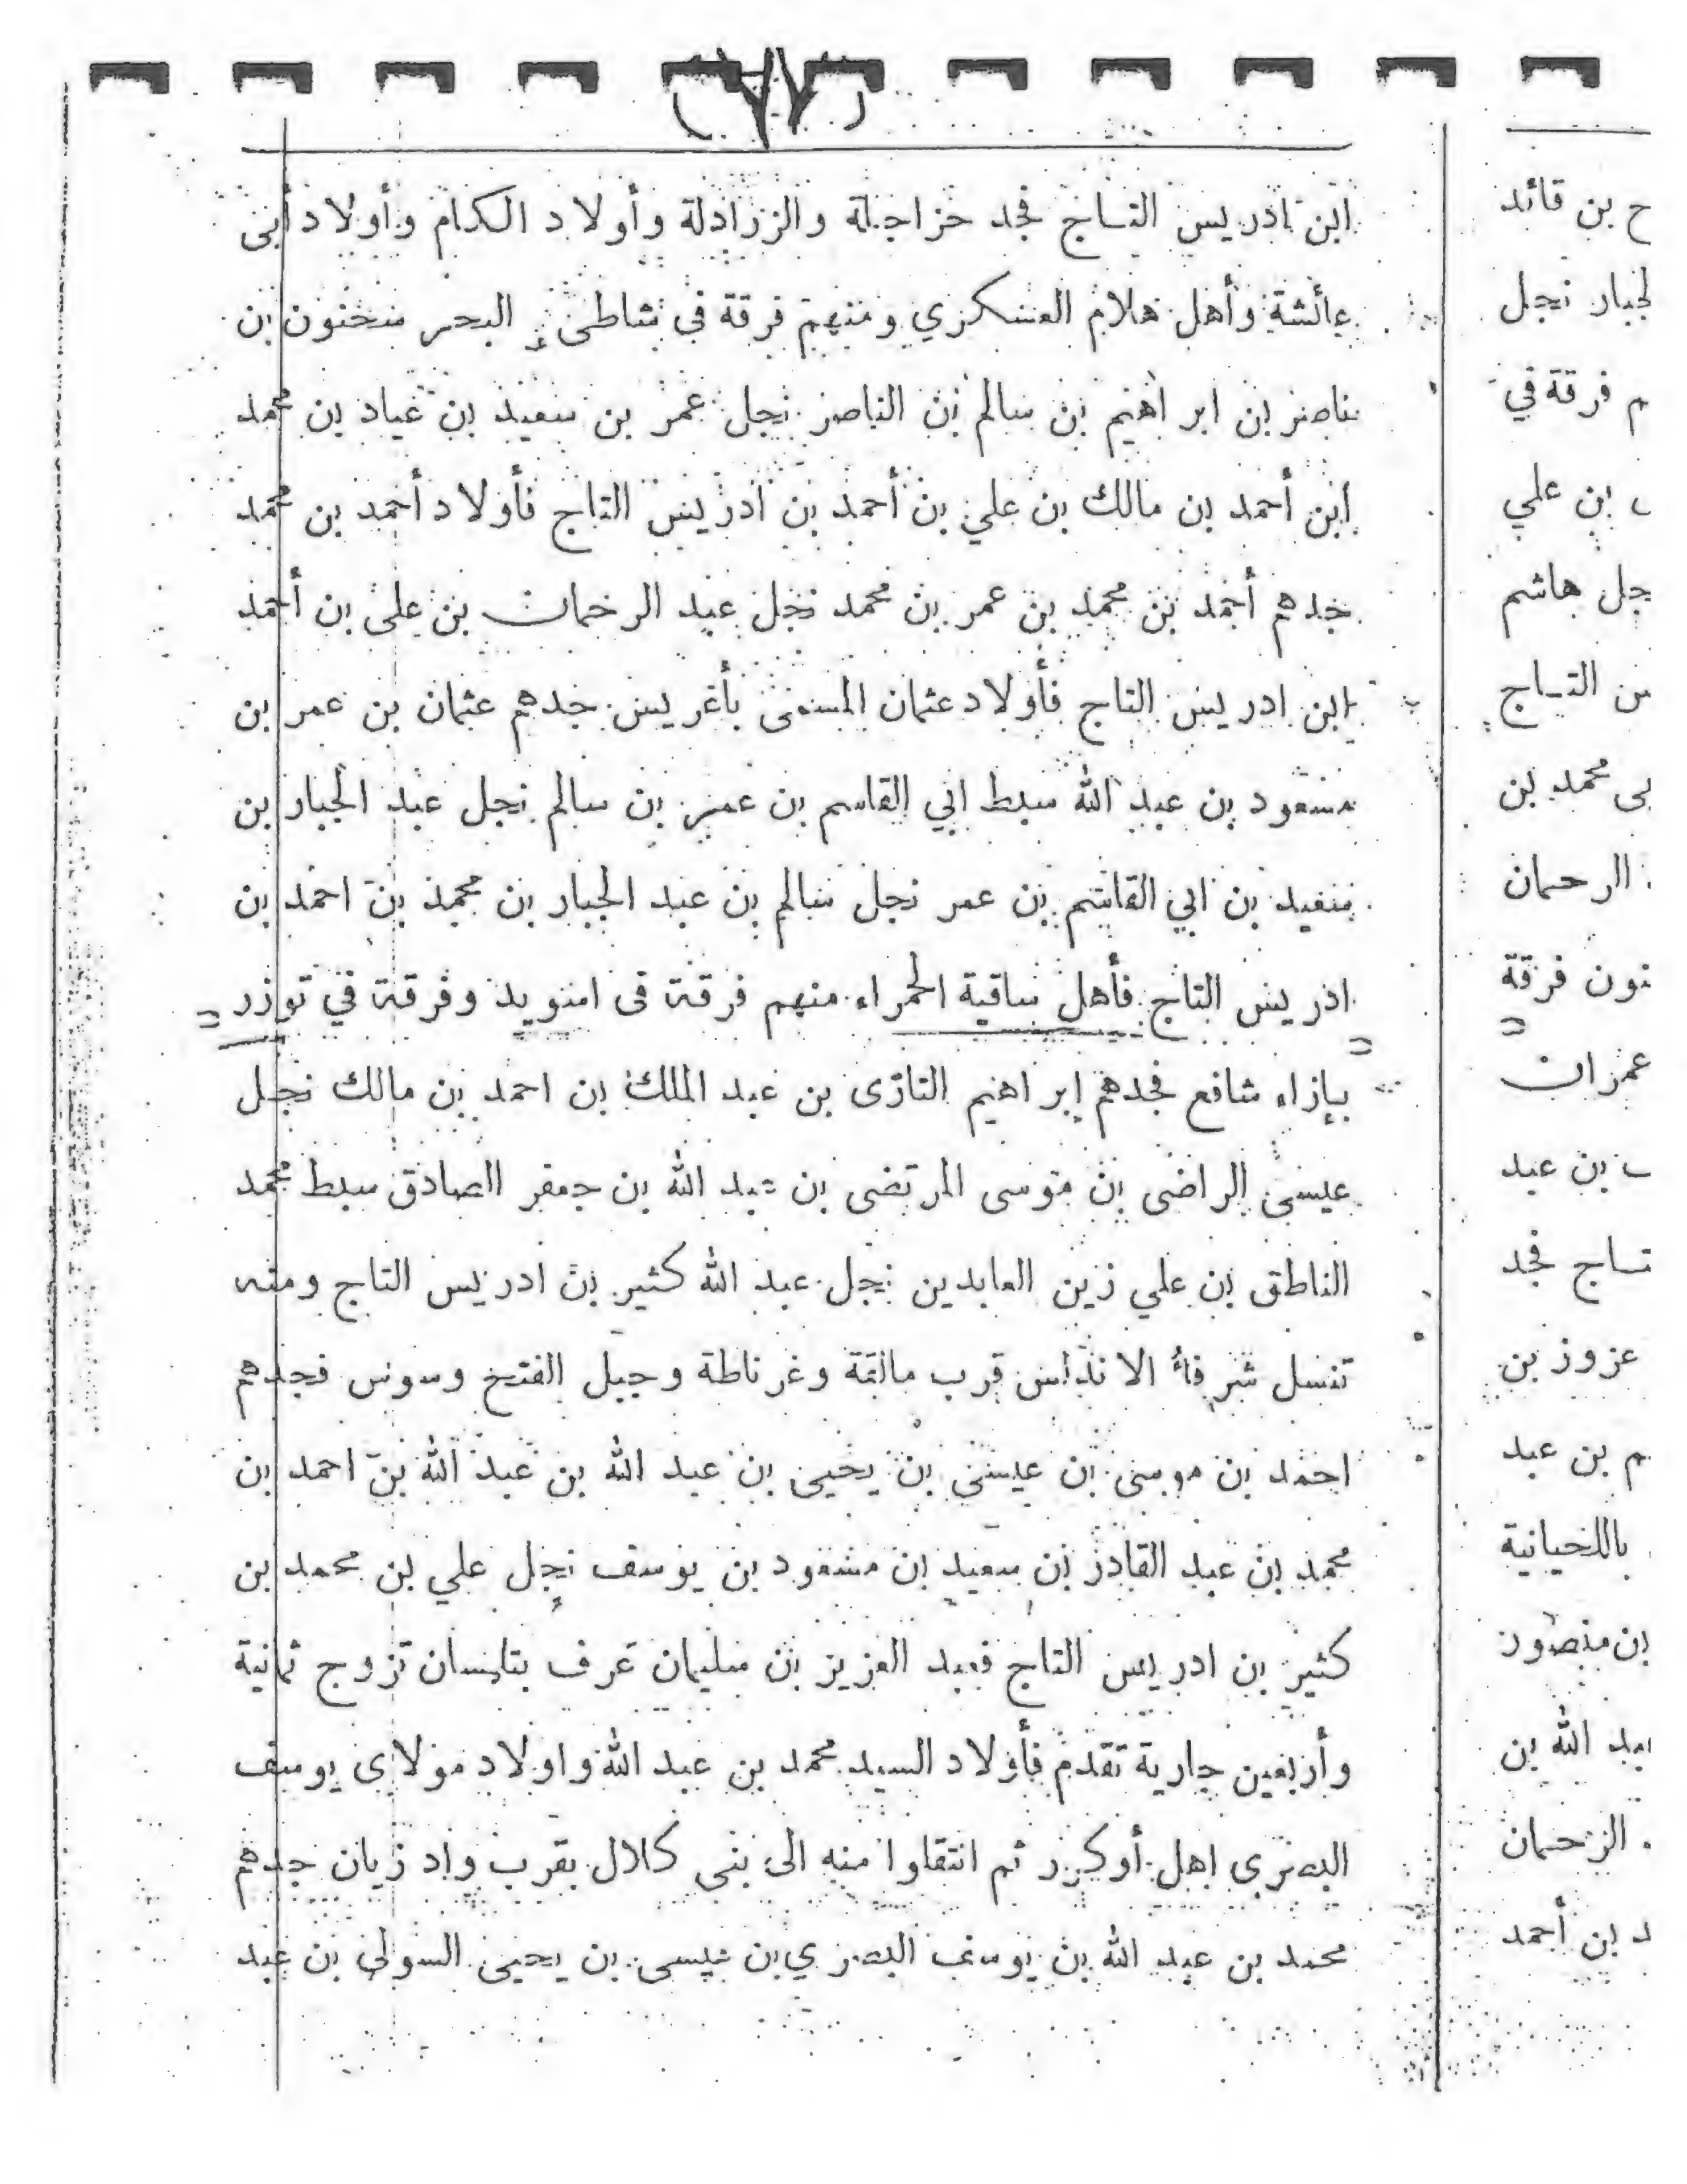 ابن ادريس التاج فجد خزاجلة والززادلة وأولاد الكرام وأولاد أبى
عائشة وأهل هلام العسكري ومنهم فرقة في شاطئ البحر سحنون بن
ناصر بن ابراهيم بن سالم بن الناصر نجل عمر بن سعيد بن عياد بن محمد
ابن أحمد بن مالك بن علي بن أحمد بن ادريس التاج فأولاد أحمد بن محمد
جدهم أحمد بن محمد بن عمر بن محمد نجل عبد الرحمان بن على بن أحمد
ابن ادريس التاج فأولاد عثمان المسمى بأغريس جدهم عثمان بن عمر بن
مسعود بن عبد الله سبط ابي القاسم بن عمر بن سالم نجل عبد الجبار بن
سعيد بن ابي القاسم بن عمر نجل سالم بن عبد الجبار بن محمد بن احمد بن
ادريس التاج فأهل ساقية الحمراء منهم فرقة فى اسويد وفرقة في توزر
بإزاء شافع فجدهم إبراهيم التازى بن عبد الملك بن احمد بن مالك نجل
عيسى الراضى بن موسى المرتضى بن عبد الله بن جعفر الصادق سبط محمد
الناطق بن علي زين العابدين نجل عبد الله كثير بن ادريس التاج ومنه
تنسل شرفاء الاندلس قرب مالقة وغرناطة وجبل الفتح وسوس فجدهم
احمد بن موسى بن عيسى بن يحيى بن عبد الله بن عبد الله بن احمد بن
محمد بن عبد القادر بن سعيد بن مسعود بن يوسف نجل علي بن محمد بن
كثير بن ادريس التاج فعبد العزيز بن سليمان عرف بتلمسان تزوج ثمانية
وأربعين جارية تقدم فأولاد السيد محمد بن عبد الله واولاد مولاى يوسف
البصري اهل أوكرر ثم انتقلوا منه الى بنى كلال بقرب واد زيان جدهم
محمد بن عبد الله بن يوسف البصري بن عيسى بن يحيى السولي بن عبد
ح بن قائد
لجبار نجل
م فرقة في
بن علي
جل هاشم
س التاج
محمد بن
الرحمان
نون فرقة
عمران
بن عبد
تاج فجد
عزوز بن
م بن عبد
باللحيانية
بن منصور
بد الله بن
الرحمان
د بن أحمد